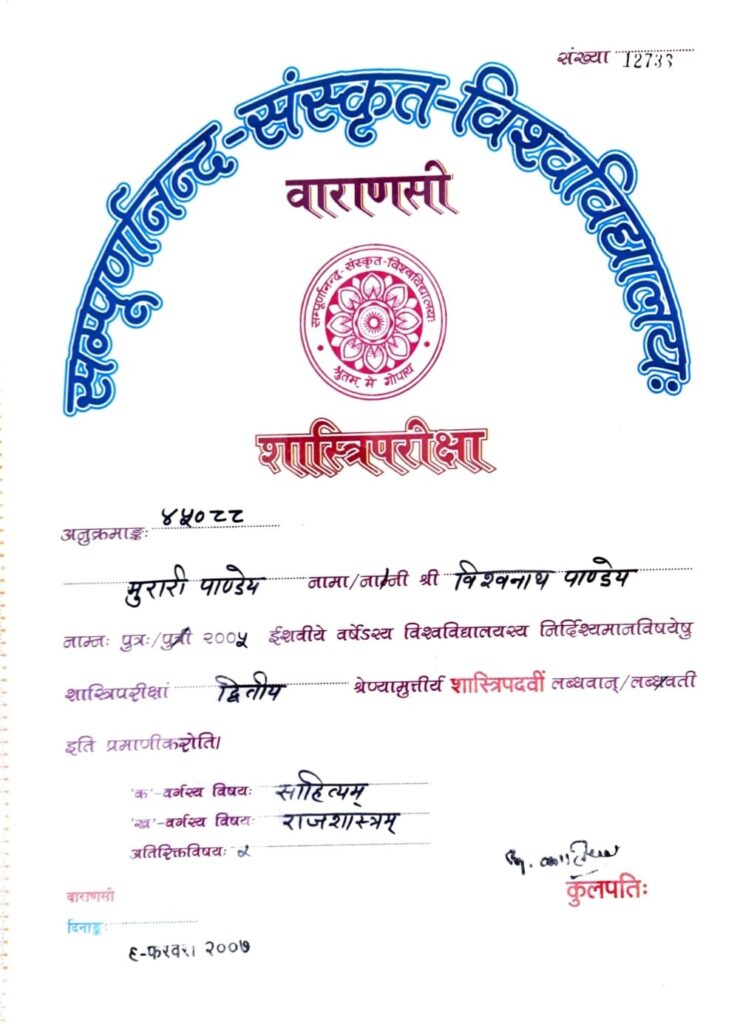 संख्या 12733
सम्पूर्णानन्द-संस्कृत-विश्वविद्यालयः
वाराणसी
सम्पूर्णानन्द-संस्कृत-विश्वविद्यालयः
श्रुतम् मे गोपाय
शास्त्रिपरीक्षा
अनुक्रमाङ्कः ४५०८८
मुरारी पाण्डेय नामा/नाम्नी श्री विश्वनाथ पाण्डेय
नाम्नः पुत्रः/पुत्री २००५ ईशवीये वर्षेऽस्य विश्वविद्यालयस्य निर्दिश्यमानविषयेषु
शास्त्रिपरीक्षां द्वितीय श्रेण्यामुत्तीर्य शास्त्रिपदवीं लब्धवान्/लब्धवती
इति प्रमाणीकरोति।
'क'-वर्गस्य विषयः साहित्यम्
'ख'-वर्गस्य विषयः राजशास्त्रम्
अतिरिक्तविषयः
कुलपतिः
वाराणसी
दिनाङ्कः
६-फरवरी २००७